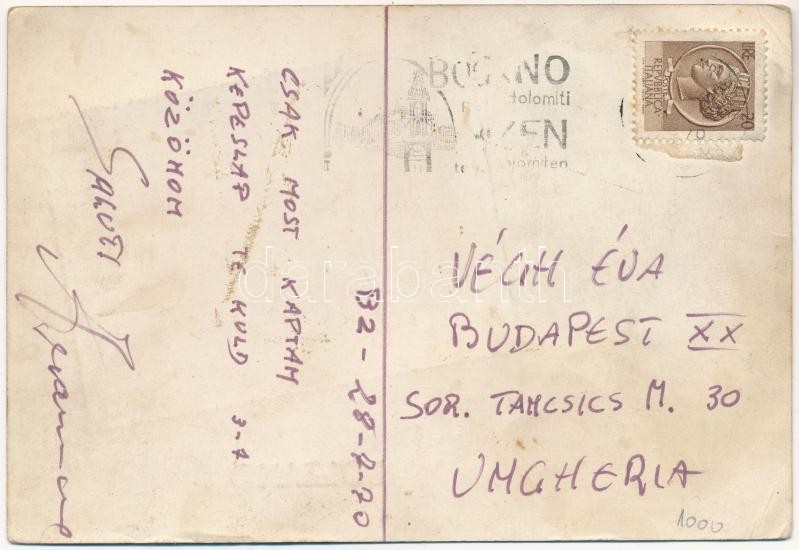 BZ - 28-7-70
CSAK MOST KAPTAM
KEPESLAP TE KULD 3-7
KÖZÖNOM
SALUTI
BOLZANO
dolomiti
BOZEN
dolomiten
LIRE 20
REPUBBLICA
ITALIANA
VÉGH ÉVA
BUDAPEST XX
SOR. TANCSICS M. 30
UNGHERIA
1000
darabanth